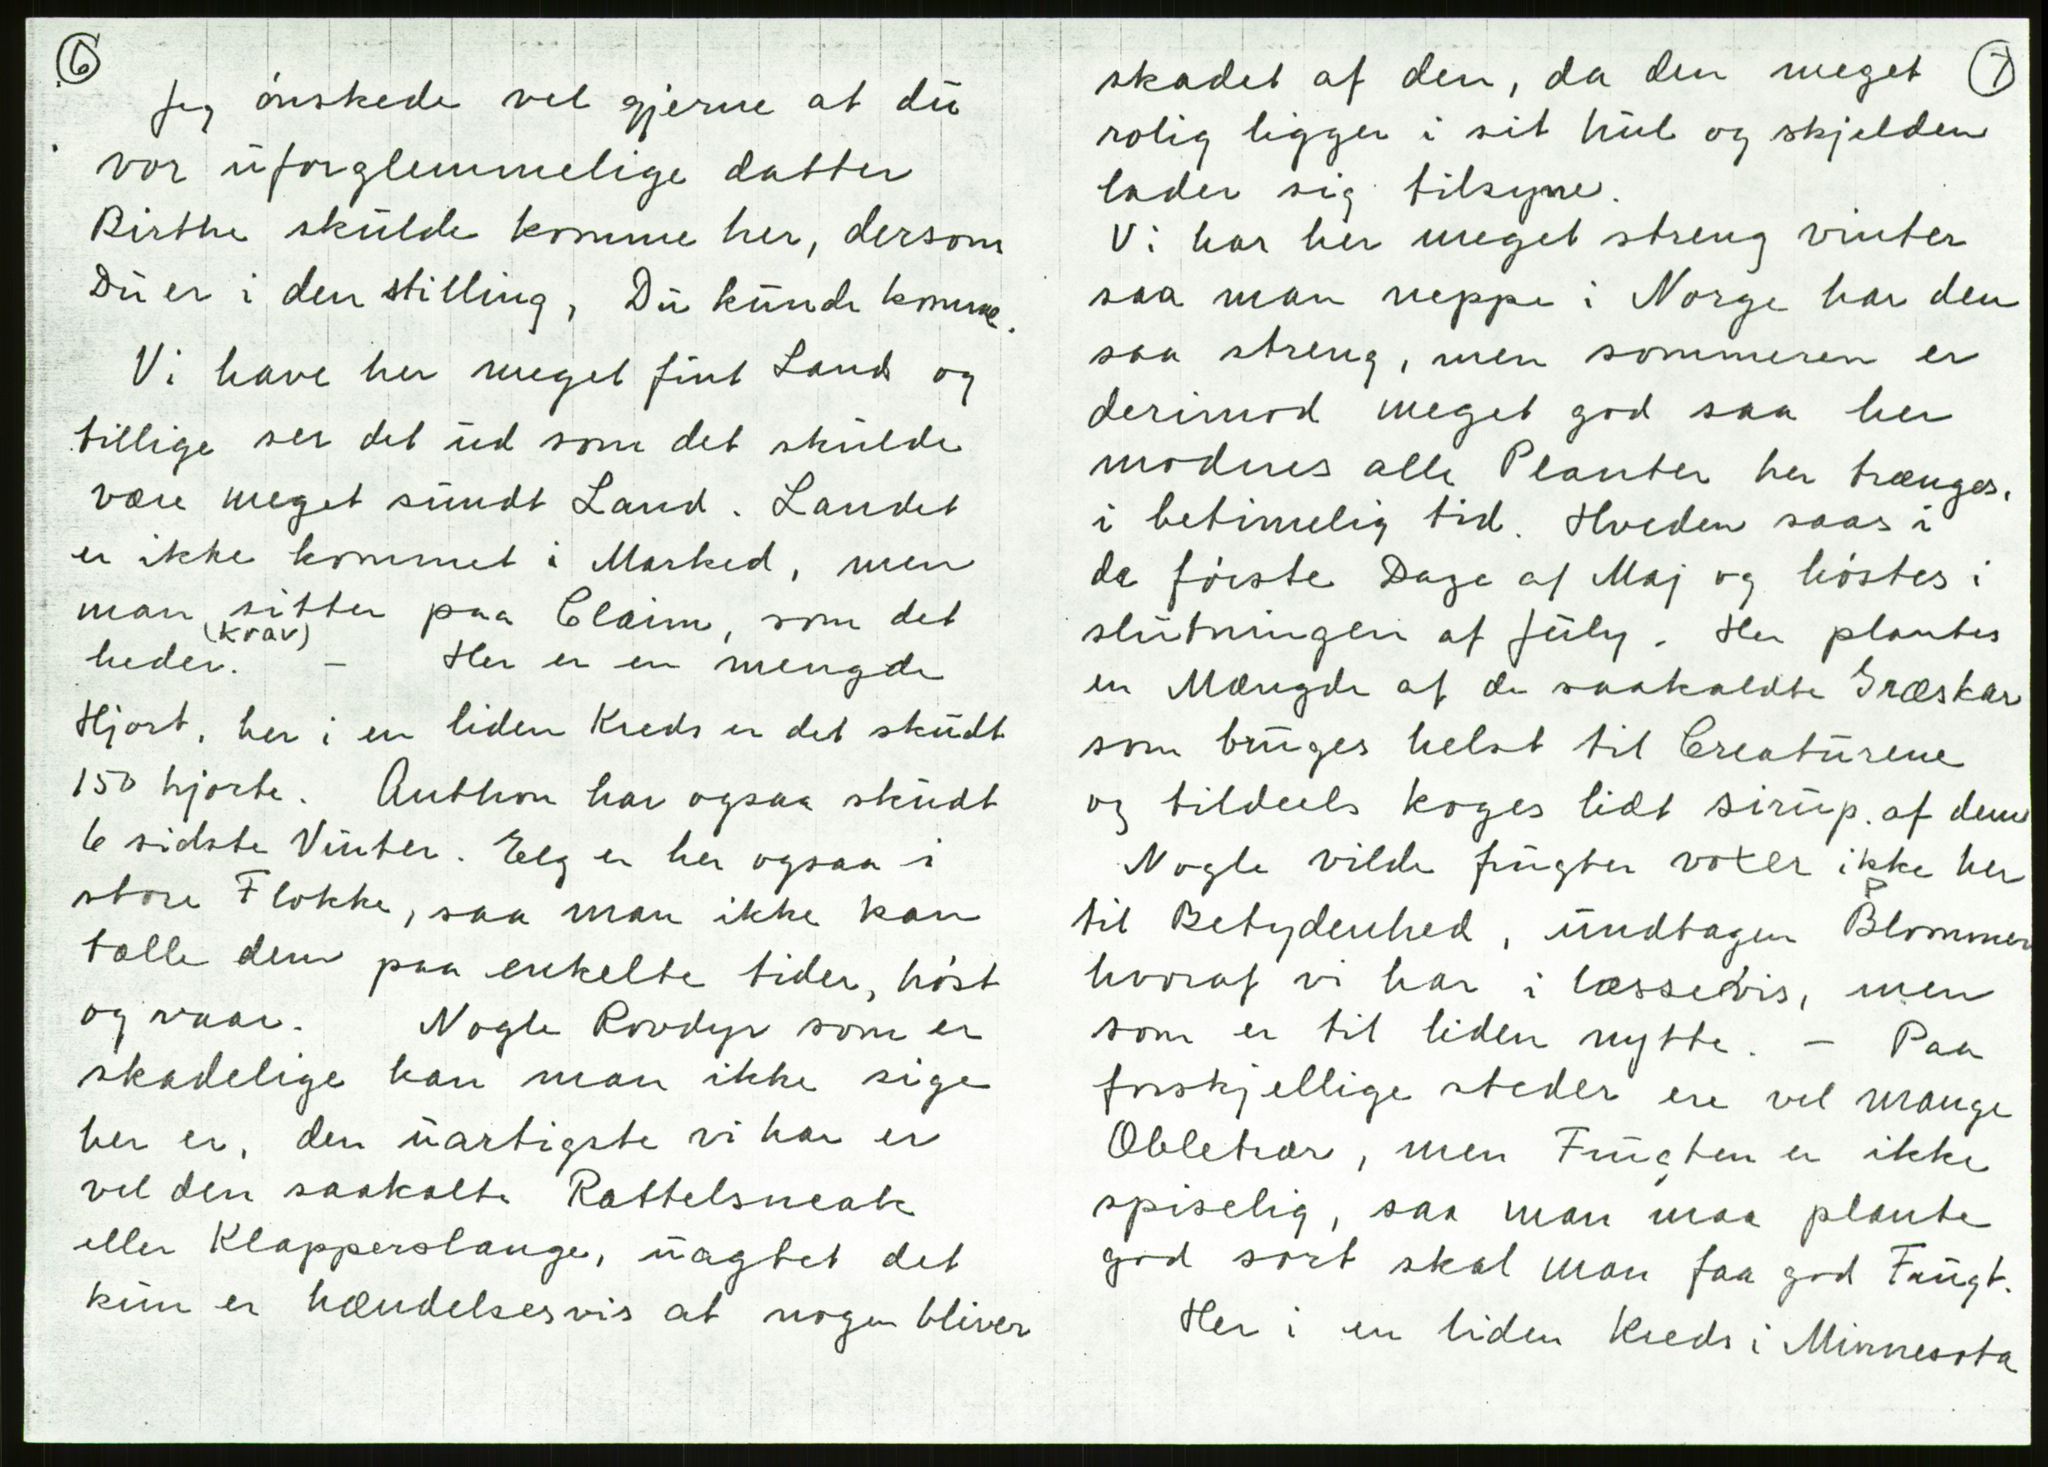 6
Jeg ønskede vel gjerne at du
vor uforglemmelige datter
Birthe skulde komme her, dersom
Du er i den stilling, Du kunde komme.
Vi have her meget fint Land og
tillige ser det ud som det skulde
være meget sundt Land. Landet
er ikke kommet i Marked, men
man sitter paa Claim, som det
(krav)
heder. – Her er en mengde
Hjort, her i en liden Kreds er det skudt
150 hjorte. Anthon har ogsaa skudt
6 sidste Vinter. Elg er her ogsaa i
store Flokke, saa man ikke kan
tælle dem paa enkelte tider, høst
og vaar. Nogle Rovdyr som er
skadelige kan man ikke sige
her er, den uartigste vi har er
vel den saakalte Rattelsneak
eller Klapperslange, uagtet det
kun er hændelsesvis at nogen bliver
7
skadet af den, da den meget
rolig ligger i sit hul og skjelden
lader sig tilsyne.
Vi har her meget streng vinter
saa man neppe i Norge har den
saa streng, men sommeren er
derimod meget god saa her
modnes alle Planter her trænges,
i betimelig tid. Hveden saas i
de første Dage af Maj og høstes i
slutningen af July. Her plantes
en Mængde af de saakaldte Græskar
som bruges helst til Creaturene
og tildeels koges lidt sirup af dem
Nogle vilde frugter voxer ikke her
P
til Betydenhed, undtagen Blommer
hvoraf vi har i læssevis, men
som er til liden nytte. – Paa
forskjellige steder ere vel mange
Æbletrær, men Frugten er ikke
spiselig, saa man maa plante
god sort skal man faa god Frugt.
Her i en liden Kreds i Minnesota